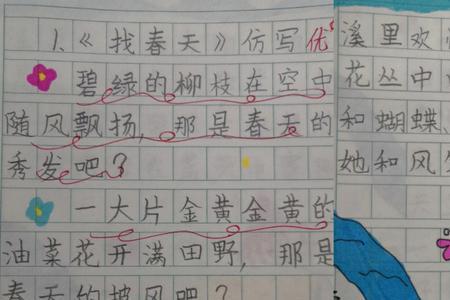 1.《找春天》仿写优
碧绿的柳枝在空中
随风飘扬，那是春天的
秀发吧？
一大片金黄金黄的
油菜花开满田野，那是
春天的披风吧？
溪里欢
花丛中
和蝴蝶、
她和风